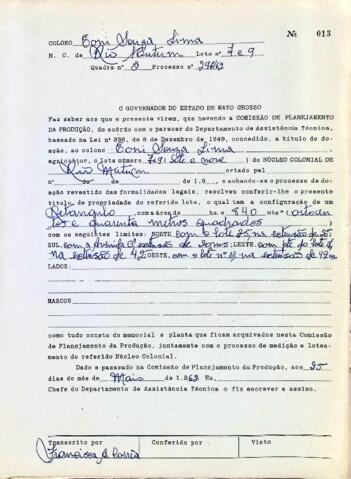 Nº 013
COLONO Eoni Souza Lima
N. C. de Rio Mutum Lote nº 7 e 9
Quadra nº 8 Processo nº
O GOVERNADOR DO ESTADO DE MATO GROSSO
Faz saber aos que o presente virem, que havendo a COMISSÃO DE PLANEJAMENTO
DA PRODUÇÃO, de acôrdo com o parecer do Departamento de Assistência Técnica,
bassado na Lei nº 336, de 6 de Dezembro de 1949, concedido, a título de doa-
ção, ao colono Eoni Souza Lima
agricultor, o lote número 7 e 9 (sete e nove) do NÚCLEO COLONIAL DE
Rio Mutum criado pel
nº de de 1.9 e achando-se o processo de do-
ação revestido das formalidades legais, resolveu conferir-lhe o presente
título, de propriedade do referido lote, o qual tem a configuração de um
Retangulo com a área de ha e 840 mts² (oitocen-
tos e quarenta metros quadrados
com os seguintes limites: NORTE com o lote 25, na extensão de 20
SUL com a Avenida extensão de 20 ms; LESTE com pte do lote
na extensão de 42 OESTE com o lote nº 11 na extensão de 42 m
LADOS:
MARCOS
como tudo consta do memorial e planta que ficam arquivados nesta Comissão
de Planejamento da Produção, juntamente com o processo de medição e lotea-
mento do referido Núcleo Colonial.
Dado e passado na Comissão de Planejamento da Produção, aos 25
dias do mês de Maio de 1.962 Eu,
Chefe do Departamento de Assistência Técnica o fiz escrever e assino.
Transcrito por Conferido por Visto
Francisca